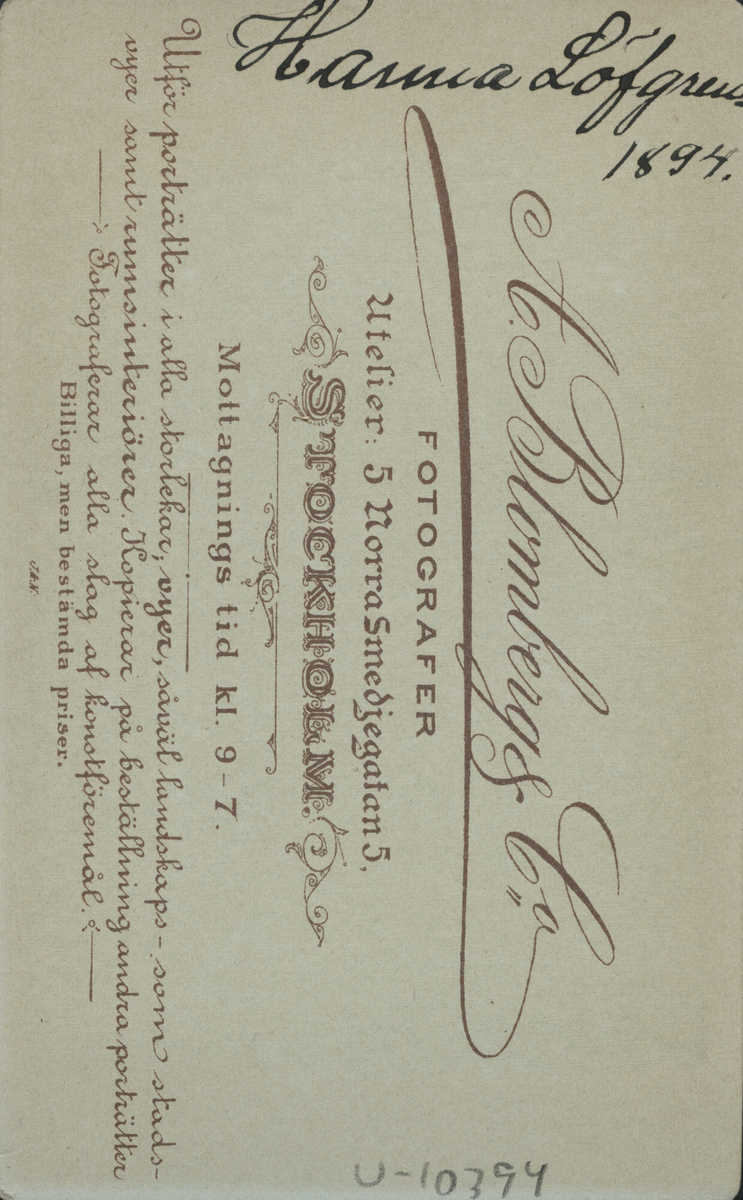 Hanna Löfgren
1894.
A. Blomberg & Co
FOTOGRAFER
Atelier: 5 Norra Smedjegatan 5,
STOCKHOLM.
Mottagnings tid kl. 9-7.
Utför porträtter i alla storlekar, vyer, såväl landskaps- som stads-
vyer samt rumsinteriörer. Kopierar på beställning andra porträtter
Fotograferar alla slag af konstföremål.
Billiga, men bestämda priser.
U-10394